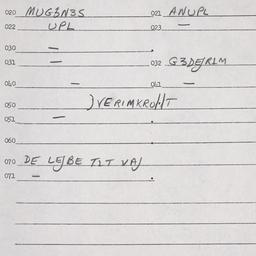 020 MUG3N3S 021 ANUPL
022 UPL 023 —
030 —
031 — 032 G3DEJRLM
040 — 041 —
050 JVERIMKROHT
051 —
060
070 DE LEJBE TLT VAJ
071 —